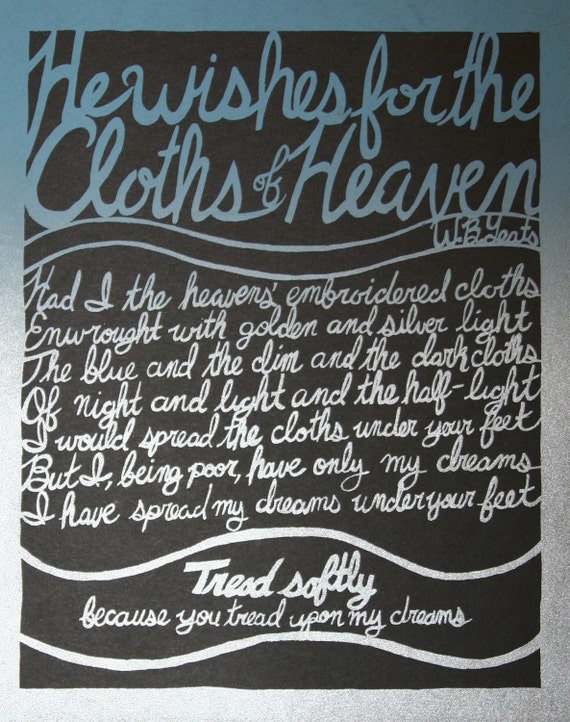 He wishes for the
Cloths of Heaven
W.B.Yeats
Had I the heavens' embroidered cloths
Enwrought with golden and silver light
The blue and the dim and the dark cloths
Of night and light and the half-light
I would spread the cloths under your feet
But I, being poor, have only my dreams
I have spread my dreams under your feet
Tread softly
because you tread upon my dreams